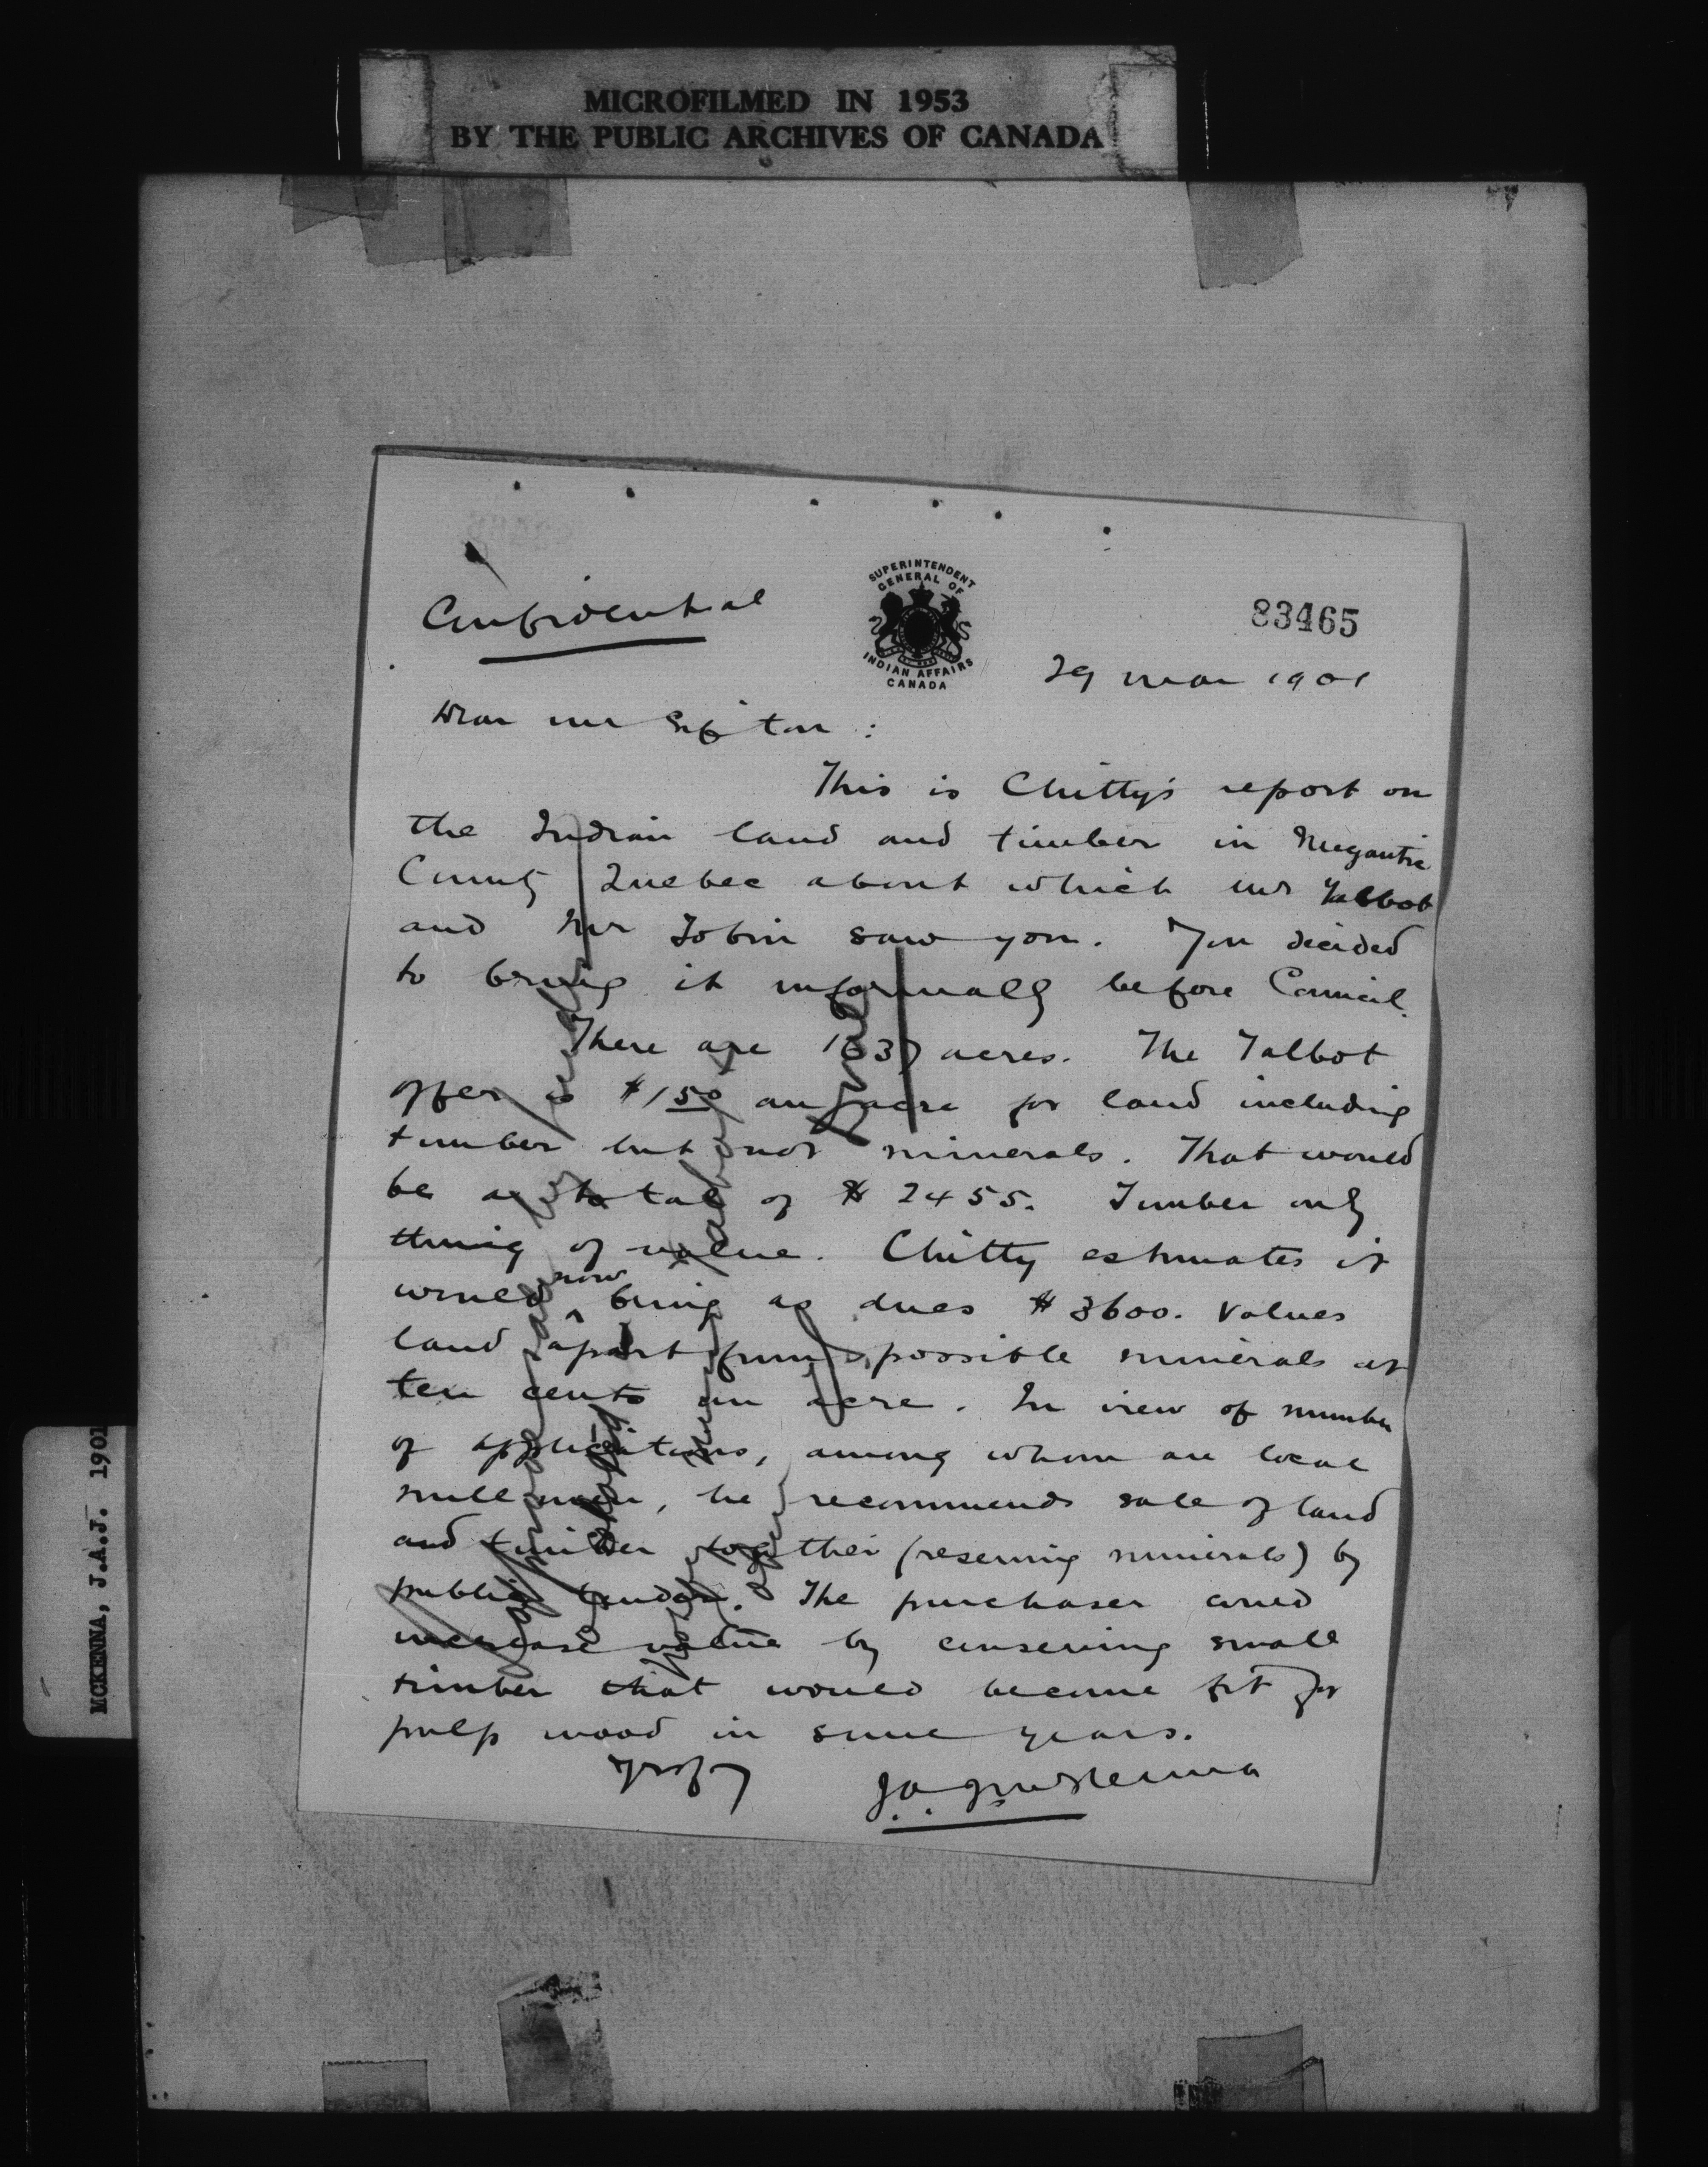 MICROFILMED IN 1953
BY THE PUBLIC ARCHIVES OF CANADA
MCKENNA, J.A.J. 1901
SUPERINTENDENT
GENERAL OF
INDIAN AFFAIRS
CANADA
83465
Confidential
29 Mar 1901
Dear Mr Sifton :
This is Chitty's report on
the Indian land and timber in Megantic
County Quebec about which Mr Talbot
and Mr Tobin saw you. You decided
to bring it informally before Council.
There are 1637 acres. The Talbot
offer is $1.50 an acre for land including
timber but not minerals. That would
be a total of $2455. Timber only
thing of value. Chitty estimates it
would now bring as dues $3600. Values
land apart from possible minerals at
ten cents an acre. In view of number
of applications, among whom are local
mill men, he recommends sale of land
and timber together (reserving minerals) by
public tender. The purchaser could
increase value by conserving small
timber that would become fit for
pulp wood in some years.
J.A.J. McKenna